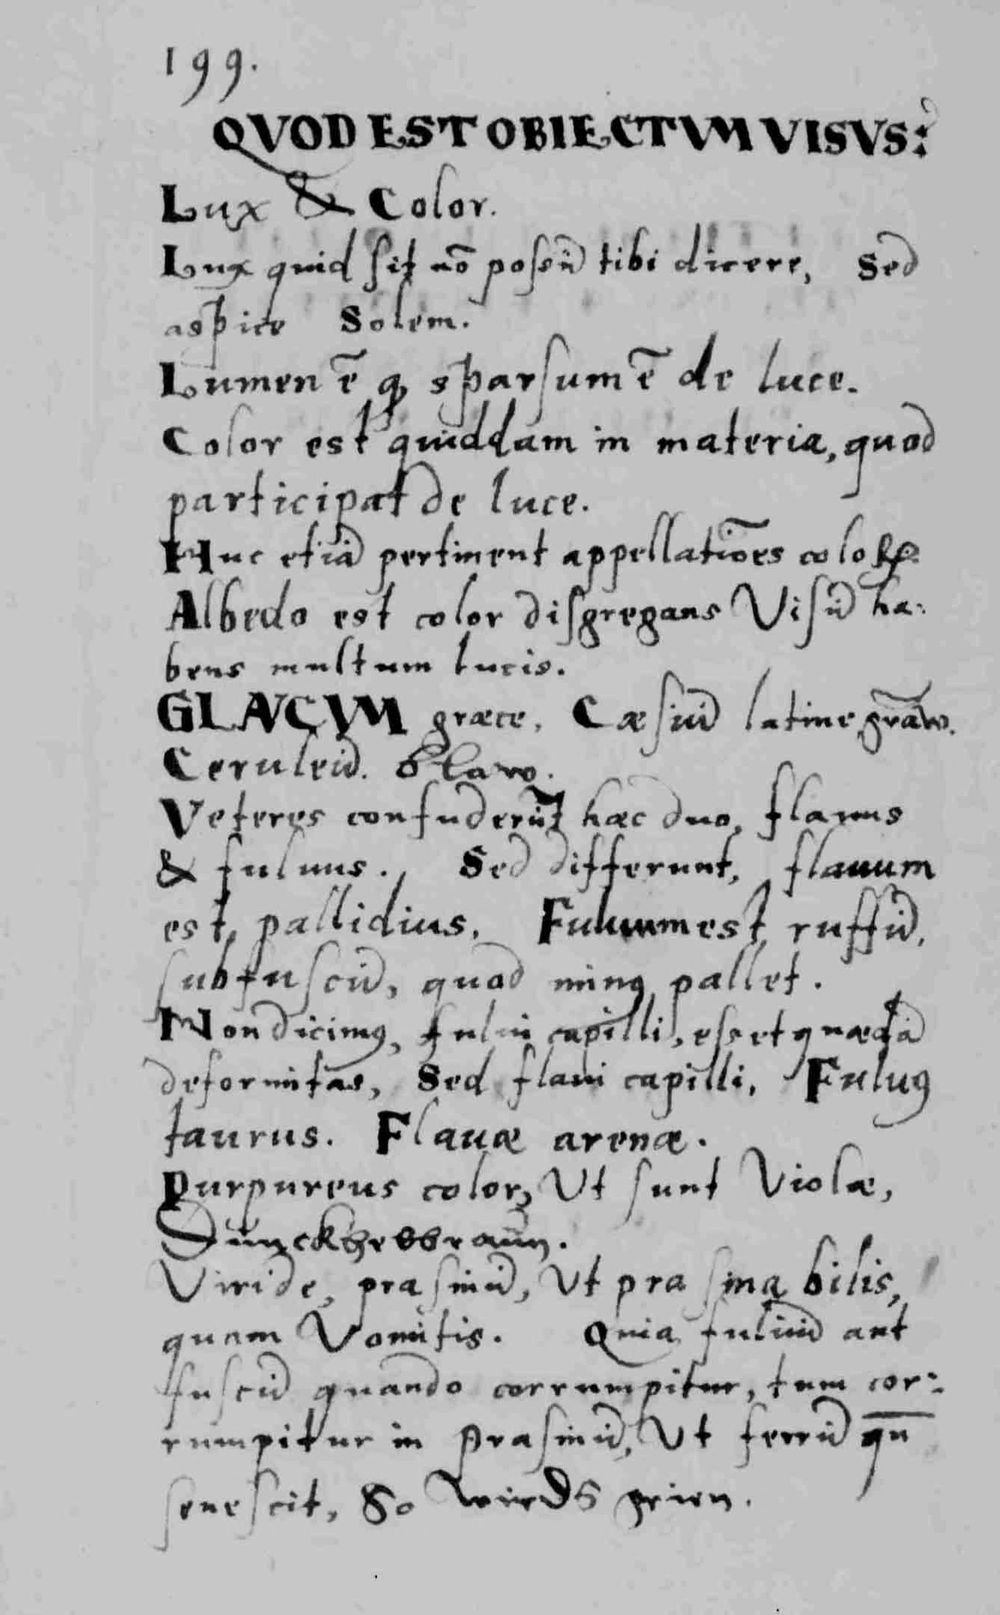 199.
QVOD EST OBIECTVM VISVS:
Lux & Color.
Lux quid sit nō possū tibi dicere, Sed
aspice Solem.
Lumen ē qꝫ sparsum ē de luce.
Color est quiddam in materia, quod
participat de luce.
Huc etiā pertinent appellatiōes coloꝝ.
Albedo est color disgregans Visū ha:
bens multum lucis.
GLAVCVM græce, Cæsiū latine, grāw.
Ceruleū. blaw.
Veteres confuderūt hæc duo, flauus
& fuluus. Sed differunt, flauum
est pallidius, Fuluum est ruffū,
subfuscū, quod minꝰ pallet.
Non dicimꝰ, fului capilli, esset quædā
deformitas, Sed flaui capilli, Fuluꝰ
taurus. Flauæ arenæ.
Purpureus color, Ut sunt Violæ,
Dunckhelbraun.
Viride, prasinū, Ut prasina bilis,
quam Vomitis. Quia fuluū aut
fuscū quando corrumpitur, tum cor:
rumpitur in Prasinū, Ut ferrū qn̄
senescit, So wirds grien.